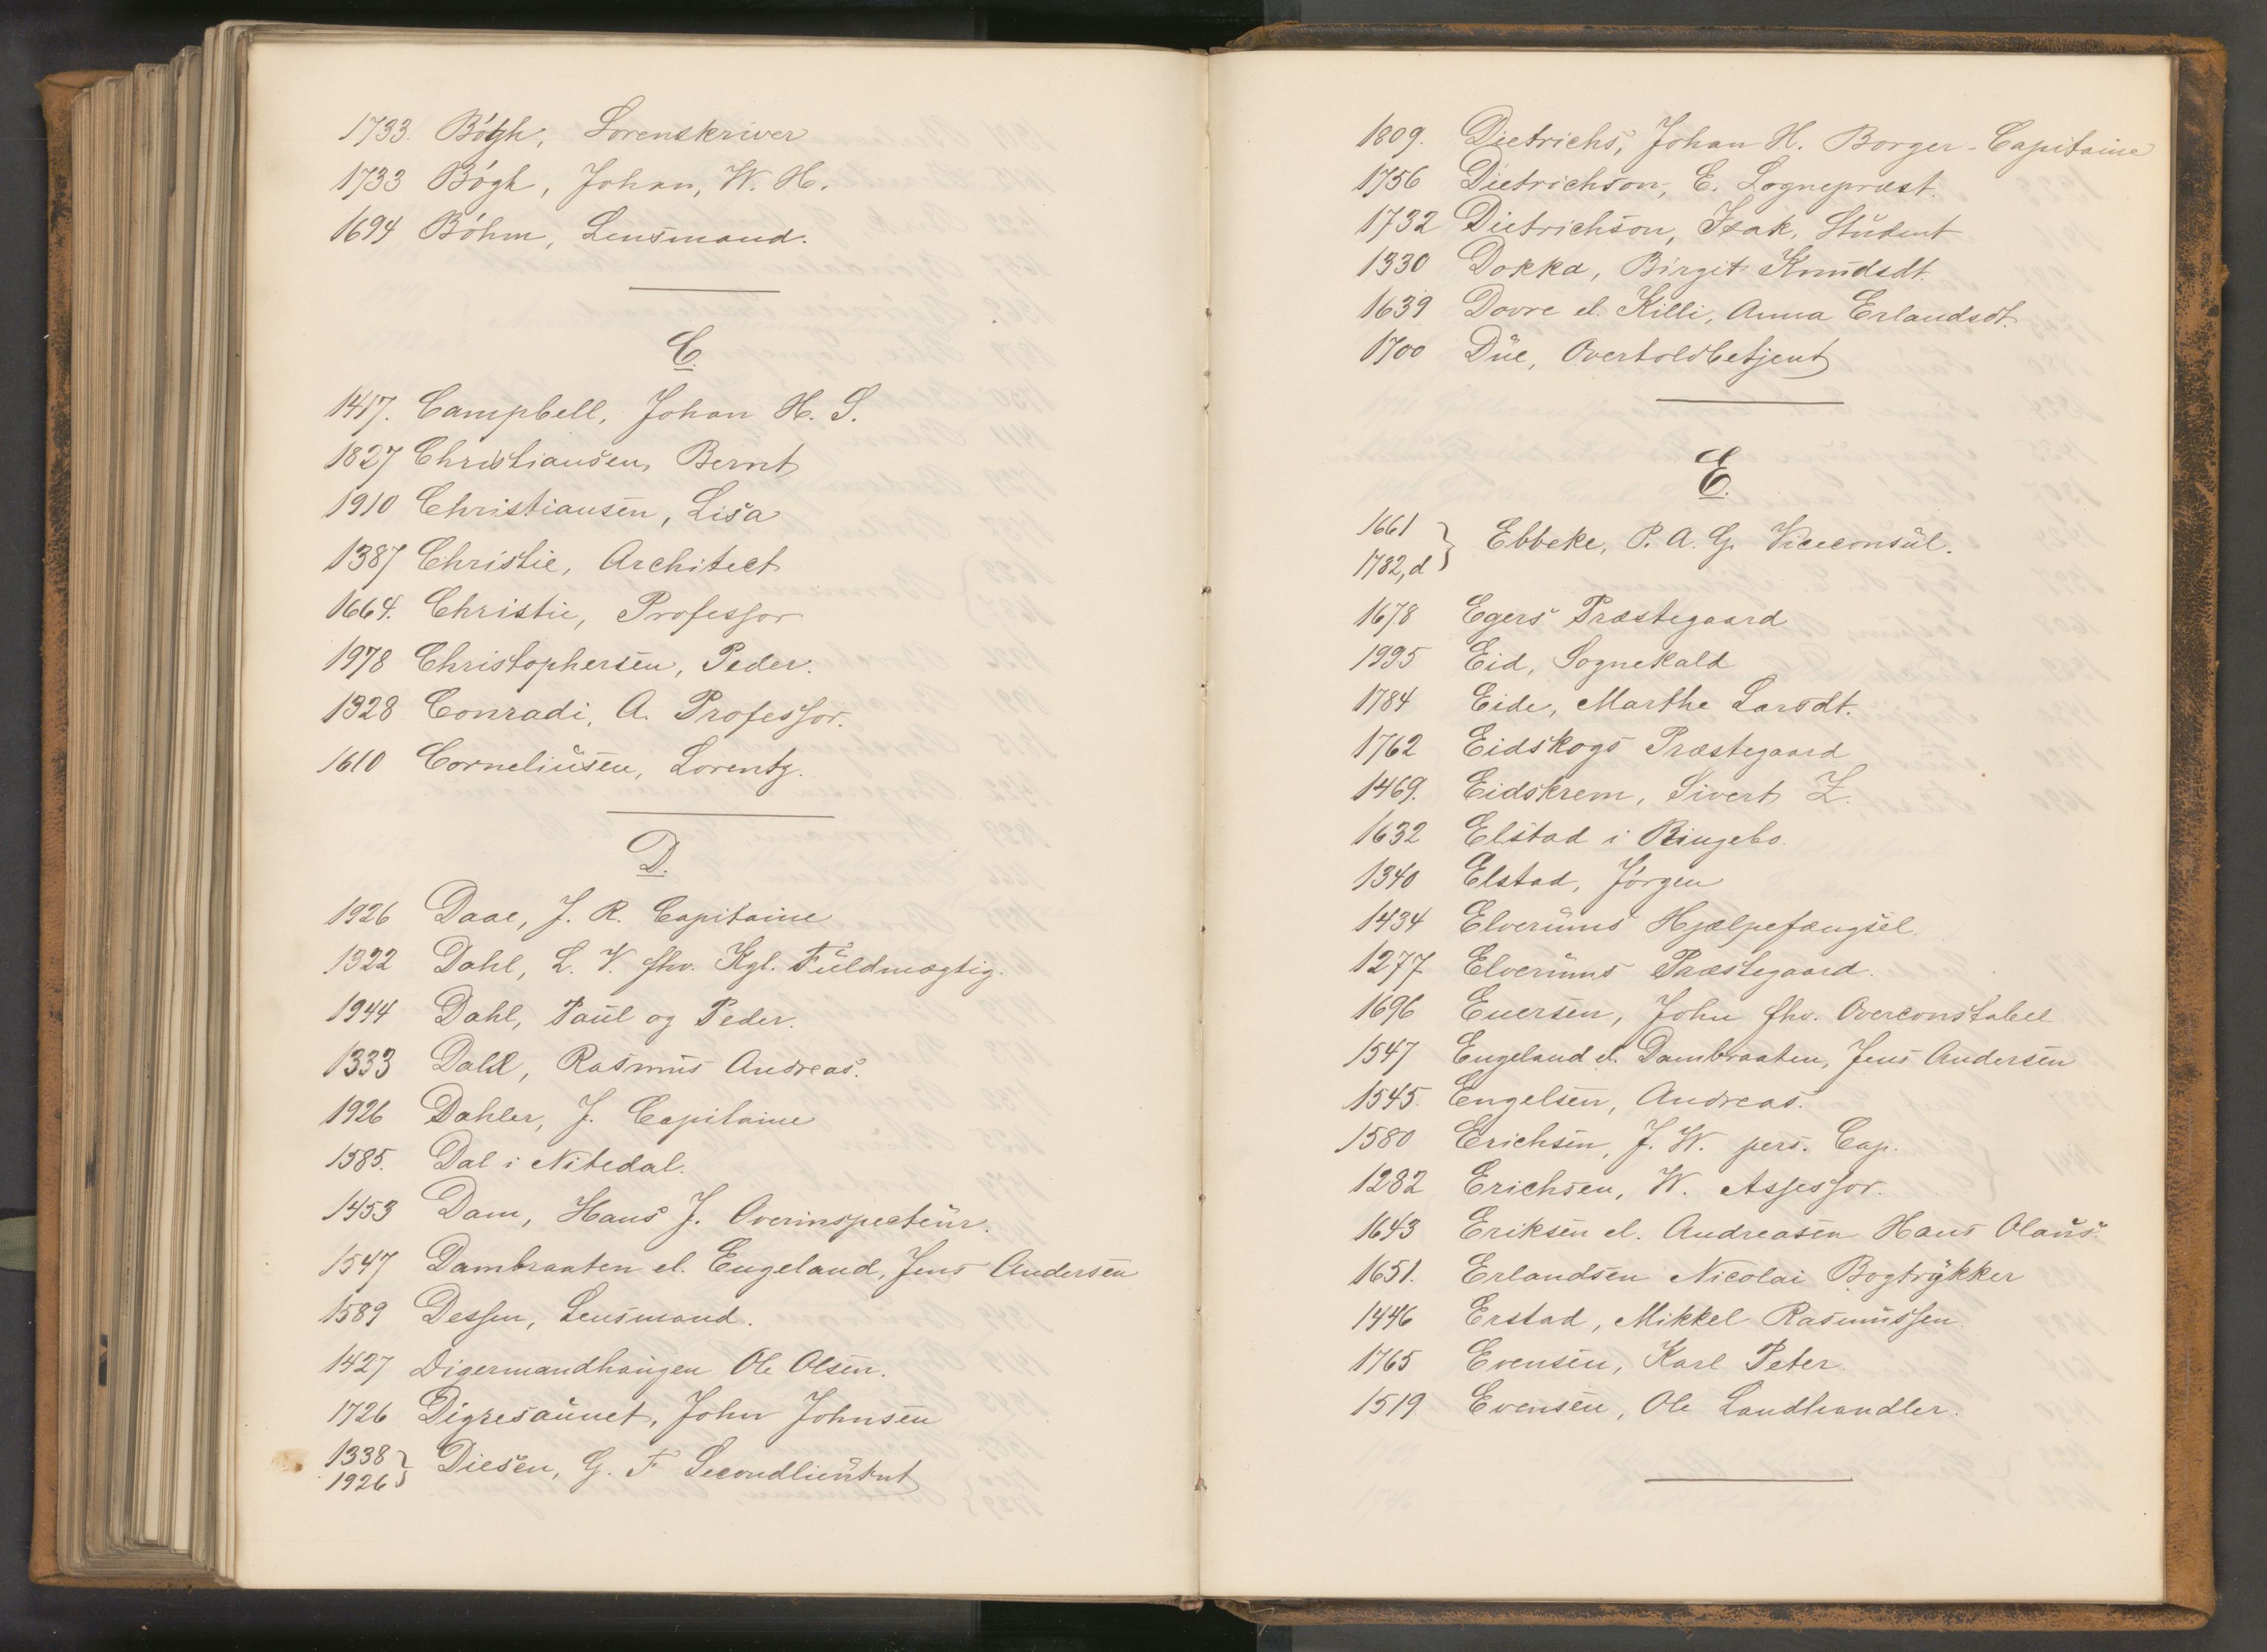 1733. Bøgh, Sorenskriver
1733 Bøgh, Johan, W. H.
1694 Bøhm, Lensmand.
C.
1417. Campbell, Johan H. S.
1827 Christiansen, Bernt
1910 Christiansen, Lisa
1387 Christie, Architect
1664. Christie, Professor
1978 Christophersen, Peder.
1328 Conradi, A. Professor.
1610 Corneliusen, Lorentz.
D.
1926 Daae, J. R. Capitaine
1322 Dahl, L. V. fhv. Kgl. Fuldmægtig.
1944 Dahl, Paul og Peder.
1333 Dahl, Rasmus Andreas.
1926 Dahler, J. Capitaine
1585. Dal i Nitedal.
1453 Dam, Hans J. Overinspecteur.
1547 Dambraaten el. Engeland, Jens Andersen
1589 Dessen, Lensmand.
1427 Digermandhaugen Ole Olsen.
1726 Digresaunet, John Johnsen
1338
1926 } Diesen, G. F Secondlieutnt
1809. Dietrichs, Johan H. Borger-Capitaine
1756 Dietrichson, E. Sognepræst.
1732 Dietrichson, Isak, Student
1330 Dokka, Birgit Knudsdt.
1639 Dovre el. Killi, Anna Erlandsdt.
1700 Due, Overtoldbetjent
E.
1661
1782,d } Ebbeke, P. A. G. Viceconsul.
1678 Egers Præstegaard
1995 Eid, Sognekald
1784 Eide, Marthe Larsdt.
1762 Eidskogs Præstegaard
1469. Eidskrem, Sivert Z.
1632 Elstad i Ringebo.
1340 Elstad, Jørgen
1434 Elverums Hjælpefængsel.
1277 Elverums Præstegaard.
1696 Enersen, John fhv. Overconstabel
1547 Engeland el. Dambraaten, Jens Andersen
1545. Engelsen, Andreas.
1580 Erichsen, J. W. pers. Cap.
1282 Erichsen, W. Assessor.
1643 Eriksen el. Andreasen Hans Olaus.
1651. Erlandsen Nicolai Bogtrykker
1446 Erstad, Mikkel Rasmussen.
1765 Evensen, Karl Peter.
1519 Evensen, Ole Landhandler.